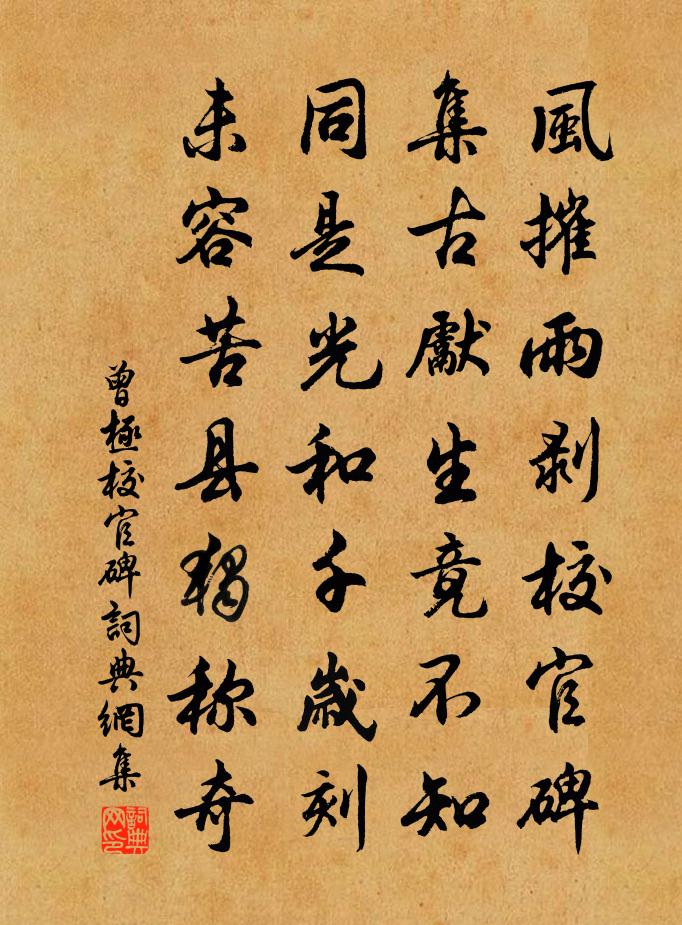 風摧雨剥校官碑
集古獻生竟不知
同是光和千歲刻
未容苦县獨称奇
曾極校官碑詞典網集
詞典网印